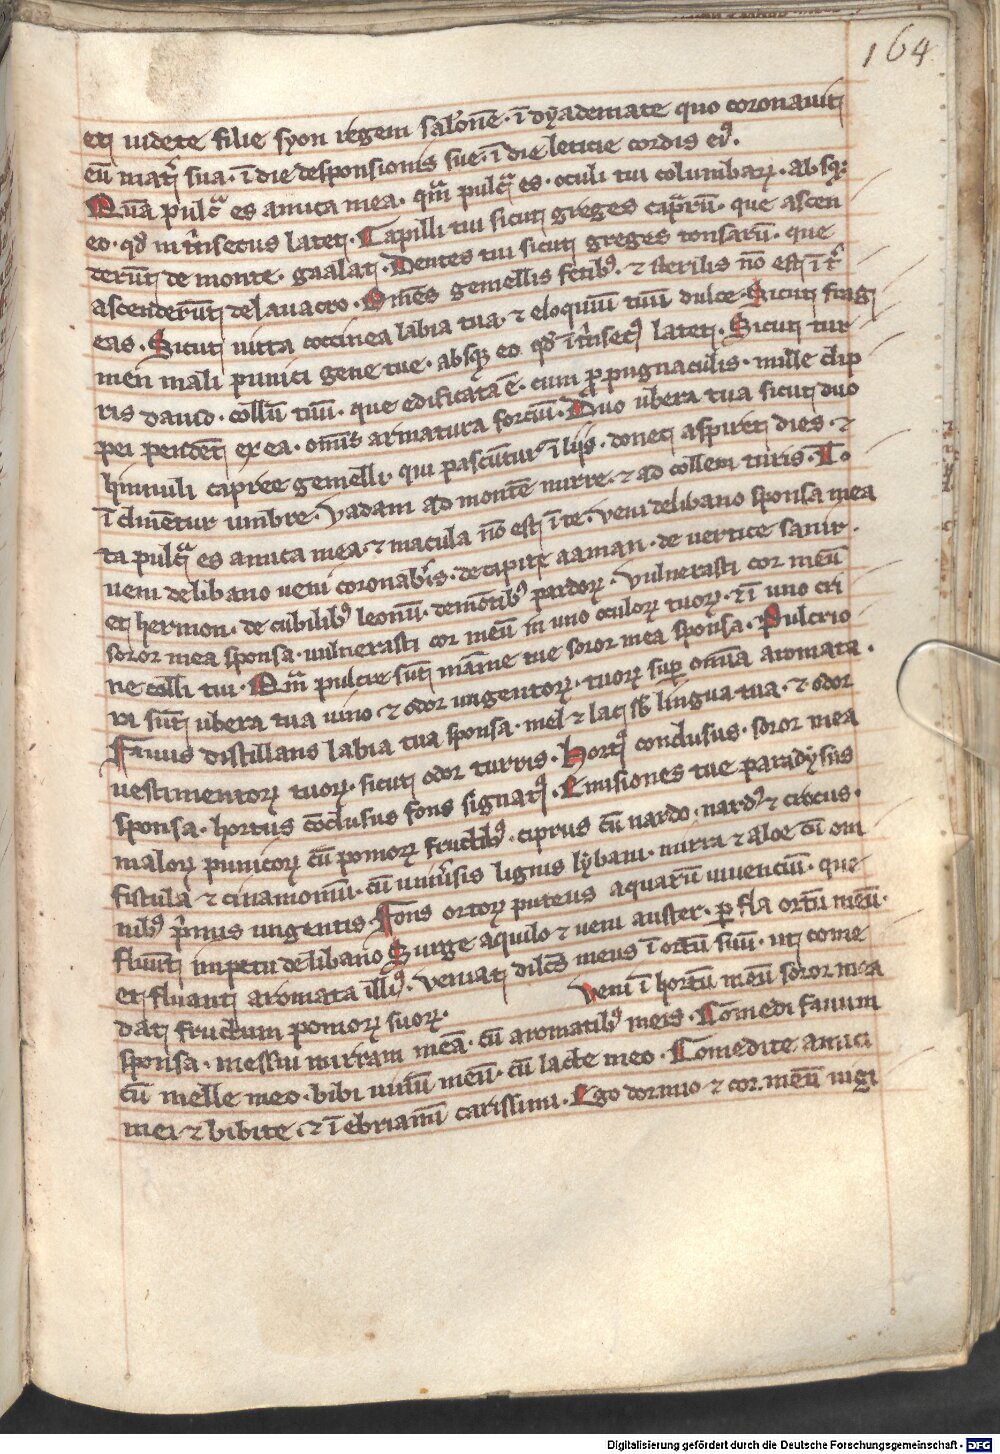 164
et uidete filie syon regem salōnē · ī dyademate quo coronauit
eū mat͛ sua · ī die desponsionis sue · ī die leticie cordis eiꝰ.
Quā pulcᵃ es amica mea · qm̄ pulcᵃ es · oculi tui columbaꝝ · absqꝫ
eo · qd̓ int͛nsecus latet · Capilli tui sicut greges cap̄rū · que ascen
derūt de monte · gaalat · Dentes tui sicut greges tonsarū · que
ascenderūt de lauacro · Om̄es gemellis fetibꝰ · ⁊ sterilis nō est ī t͛
eas · Sicut uitta coccinea labia tua · ⁊ eloquiū tuū dulce · Sicut frag
men mali punici gene tue · absqꝫ eo qd̓ īt͛nsecꝰ latet · Sicut tur
ris dauid · collū tuū · que edificata ē · cum ꝓpugnaculis · mille clip
pei pendēt ex ea · om̄is armatura forciū · Duo ubera tua sicut duo
hinnuli capree gemelli · qui pascūtur ī liliis · donec aspiret dies · ⁊
īclinētur umbre · Vadam ad montē mirre · ⁊ ad collem turis · To
ta pulcᵃ es amica mea · ⁊ macula nō est ī te · Veni de libano sponsa mea
ueni de libano ueni coronab͛is · de capite aaman · de uertice sanir ·
et hermon · de cubilibꝰ leonū · de mōtibꝰ pardoꝝ · Vulnerasti cor meū
soror mea sponsa · uulnerasti cor meū in uno oculoꝝ tuoꝝ · ⁊ ī uno cri
ne colli tui · Qm̄ pulcre sūt mam̄e tue soror mea sponsa · Pulcrio
ra sūt ubera tua uino · ⁊ odor ungentoꝝ · tuoꝝ suꝑ om̄ia aromata ·
Fauus distillans labia tua sponsa · mel ⁊ lac sb̄ lingua tua · ⁊ odor
uestimentoꝝ tuoꝝ · sicut odor turris · Hortꝰ conclusus · soror mea
sponsa · hortus cōclusus fons signatꝰ · Emisiones tue paradysus
maloꝝ punicoꝝ cū pomoꝝ fructibꝰ · ciprus cū nardo · nardꝰ ⁊ crocus ·
fistula ⁊ cinamomū · cū uniu͛sis lignis lybani · mirra ⁊ aloe cū om
nibꝰ p͛mis ungentis · Fons ortoꝝ puteus aquarū uiuenciū · que
fluūt impetu de libano Surge aquilo ⁊ ueni auster · ꝑfla ortū meū ·
et fluant aromata illiꝰ · Veniat dilcs̄ meus ī ortū suū · ut come
dat fructum pomoꝝ suoꝝ · Veni ī hortū meū soror mea
sponsa · messiui mirram meā · cū aromatibꝰ meis · Comedi fauum
cū melle meo · bibi uinū meū · cū lacte meo · Comedite amici
mei ⁊ bibite · ⁊ īebriamī carissimi · Ego dormio ⁊ cor meū uigi
Digitalisierung gefördert durch die Deutsche Forschungsgemeinschaft - DFG